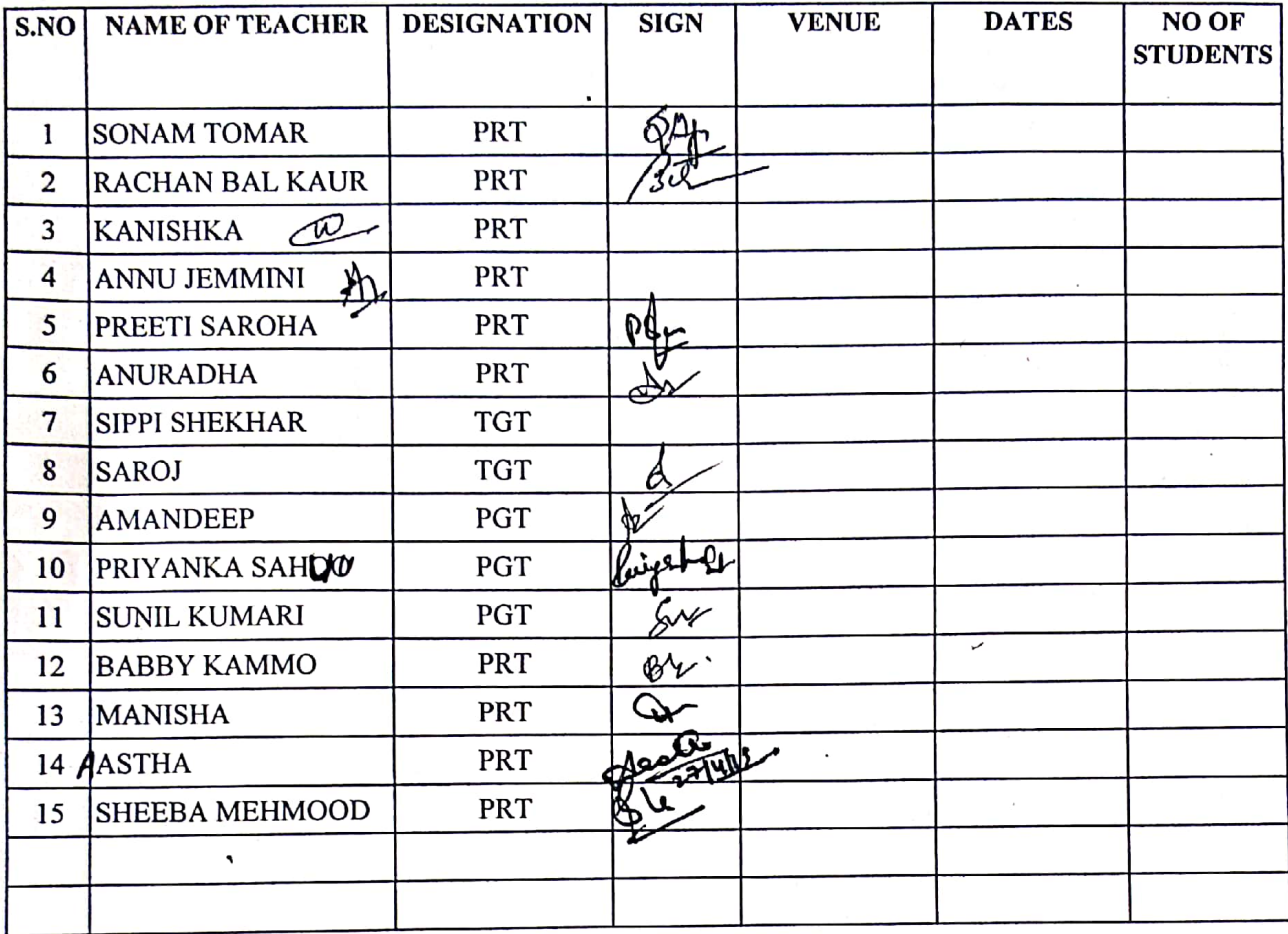 S.NO NAME OF TEACHER DESIGNATION SIGN VENUE DATES NO OF
STUDENTS
1 SONAM TOMAR PRT
2 RACHAN BAL KAUR PRT
3 KANISHKA PRT
4 ANNU JEMMINI PRT
5 PREETI SAROHA PRT
6 ANURADHA PRT
7 SIPPI SHEKHAR TGT
8 SAROJ TGT
9 AMANDEEP PGT
10 PRIYANKA PGT
11 SUNIL KUMARI PGT
12 BABBY KAMMO PRT
13 MANISHA PRT
14 AASTHA PRT
15 SHEEBA MEHMOOD PRT